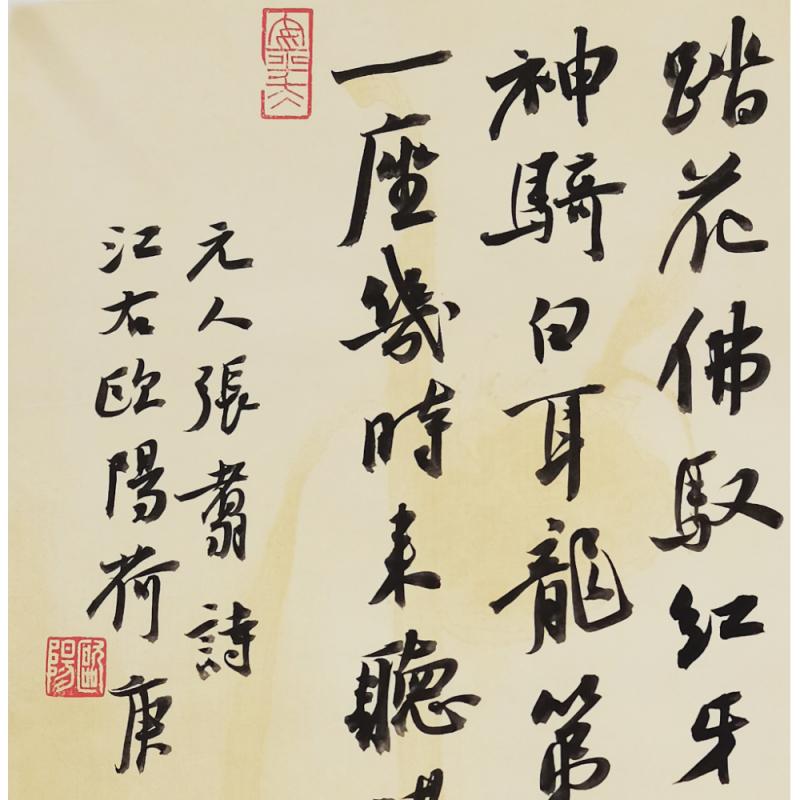 踏花佛馭紅牙
神騎白耳龍第
一座幾時來聽
元人張翥詩
江右欧陽荷庚
歐陽